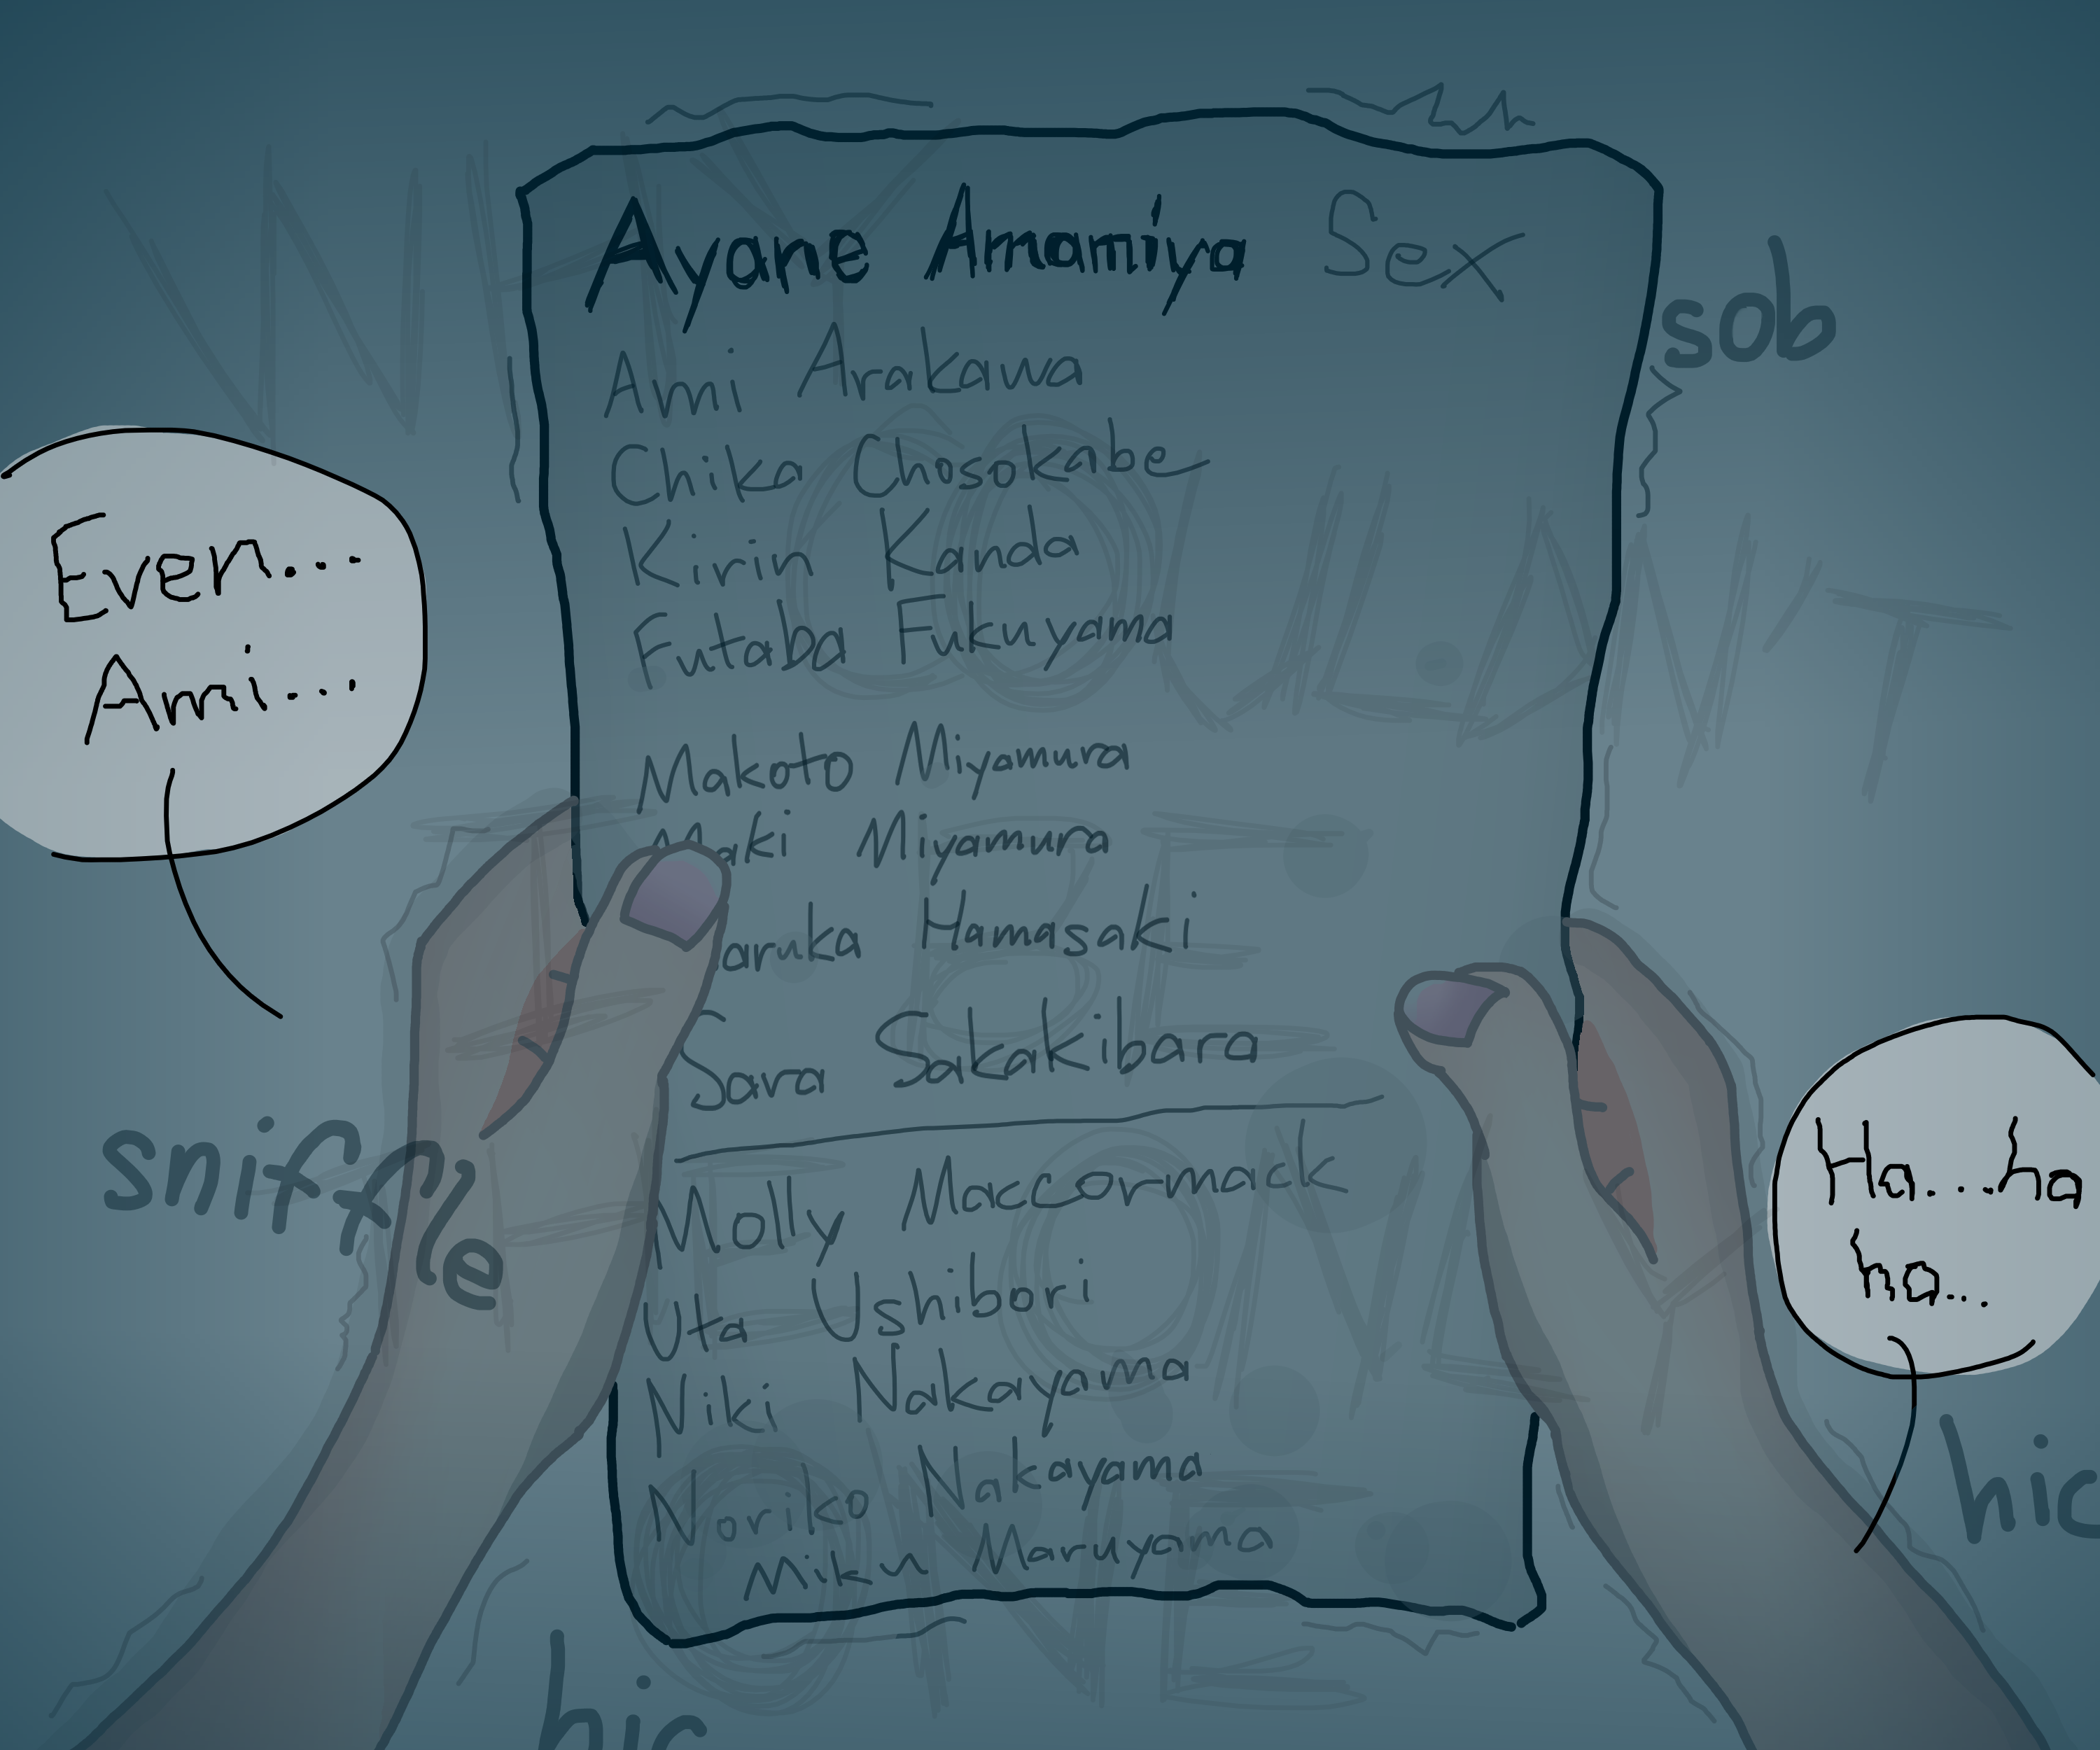 WHY
COULDN'T
I BE
THE ONLY
ONE
Ayane Amamiya Sex
Ami Arakawa
Chika Chosokabe
Kirin Kanda
Futaba Fukuyama
Makoto Miyamura
Maki Miyamura
aruka Hamasaki
Sara Sakakibara
Molly Maccormack
Uta Ushibori
Niki Nakayama
Noriko Nakayama
Miku Maruyama
Even...
Ami...
sob
sniffle
Ha...ha
ha...
hic
hic